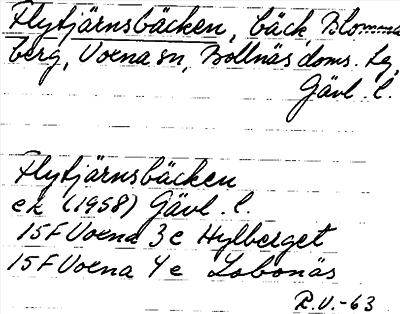 Flytjärnsbäcken, bäck, Blomma
berg, Voxna sn, Bollnäs doms. lg,
Gävl. l.
Flytjärnsbäcken
ek (1958) Gävl. l.
15F Voxna 3e Hylberget
15F Voxna 4e Lobonäs
R.V.-63